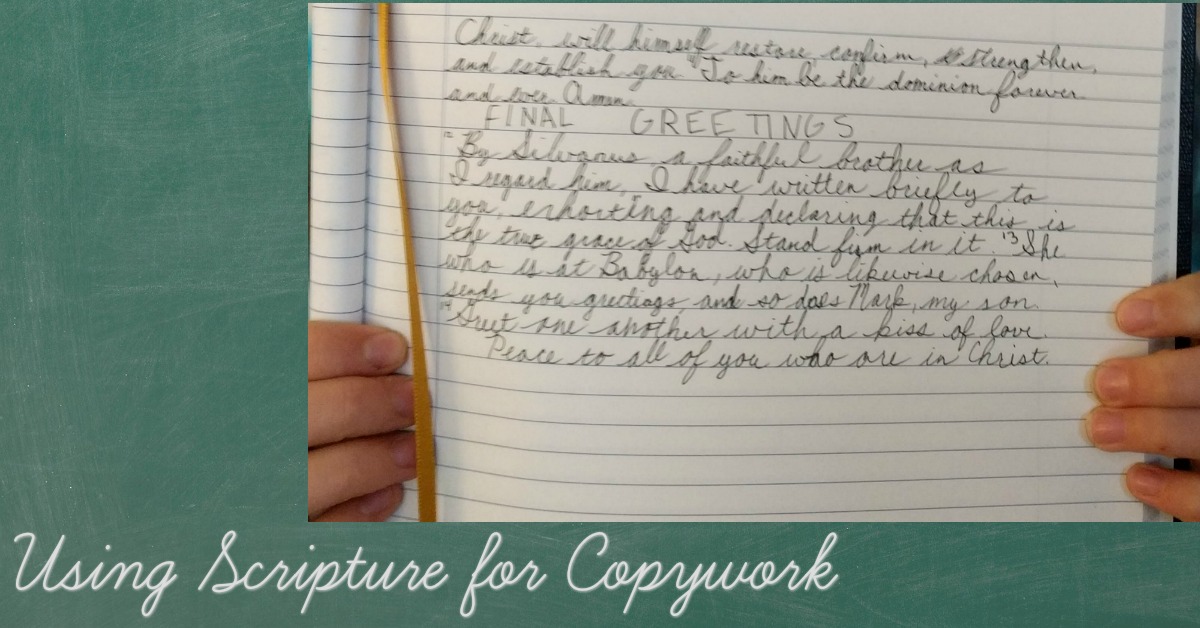 Christ, will himself restore, confirm, strengthen,
and establish you. 11 To him be the dominion forever
and ever. Amen.
FINAL GREETINGS
12 By Silvanus a faithful brother as
I regard him, I have written briefly to
you, exhorting and declaring that this is
the true grace of God. Stand firm in it. 13 She
who is at Babylon, who is likewise chosen,
sends you greetings, and so does Mark, my son.
14 Greet one another with a kiss of love.
Peace to all of you who are in Christ.
Using Scripture for Copywork